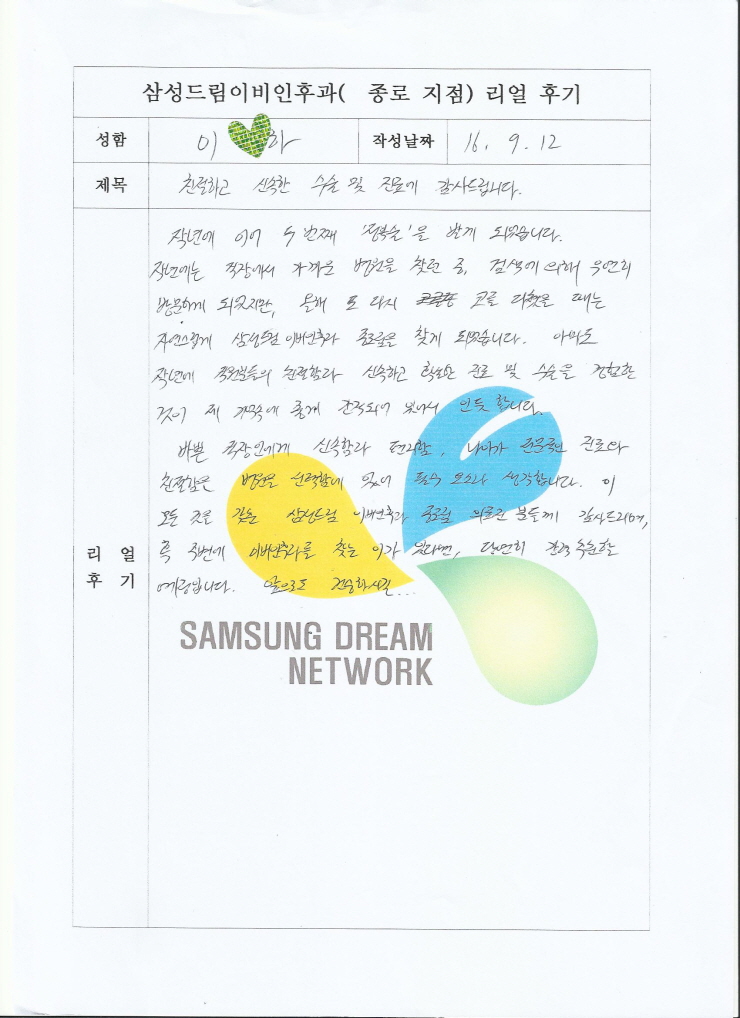 삼성드림이비인후과( 종로 지점) 리얼 후기
성함 이 하 작성날짜 16. 9. 12
제목 친절하고 신속한 수술 및 진료에 감사드립니다.
작년에 이어 두 번째 '정복술'을 받게 되었습니다.
작년에는 직장에서 가까운 병원을 찾던 중, 검색에 의해 우연히
방문하게 되었지만, 올해 또 다시 코를 다쳤을 때는
자연스럽게 삼성드림 이비인후과 종로점을 찾게 되었습니다. 아마도
작년에 직원분들의 친절함과 신속하고 확실한 진료 및 수술을 경험한
것이 제 기억속에 좋게 간직되어 있어서 인듯 합니다.
바쁜 직장인에게 신속함과 편리함, 나아가 전문적인 진료와
친절함은 병원을 선택함에 있어 필수 요소라 생각합니다. 이
모든 것을 갖춘 삼성드림 이비인후과 종로점 의료진 분들께 감사드리며,
혹 주변에 이비인후과를 찾는 이가 있다면, 당연히 추천할
예정입니다. 앞으로도 건승하시길...
리 얼
후 기
SAMSUNG DREAM
NETWORK